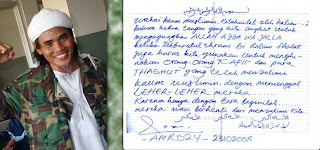 بسم الله الرحمن الرحيم
Wahai kaum muslimin, ketahuilah oleh kalian...!
Bahwa kedua tangan yang kita angkat untuk
mengagungkan ALLAH AZZA WA JALLA
ketika Takbiratul Ihram Di dalam Sholat
juga harus kita gunakan Untuk menghi-
nakan Orang-Orang KAFIR dan para
THAGHUT yang telah menzalimi
kaum muslimin, dengan memenggal
LEHER-LEHER mereka.
Karena hanya dengan Cara beginilah
mereka mau berhenti dari menzalimi kita
23102008